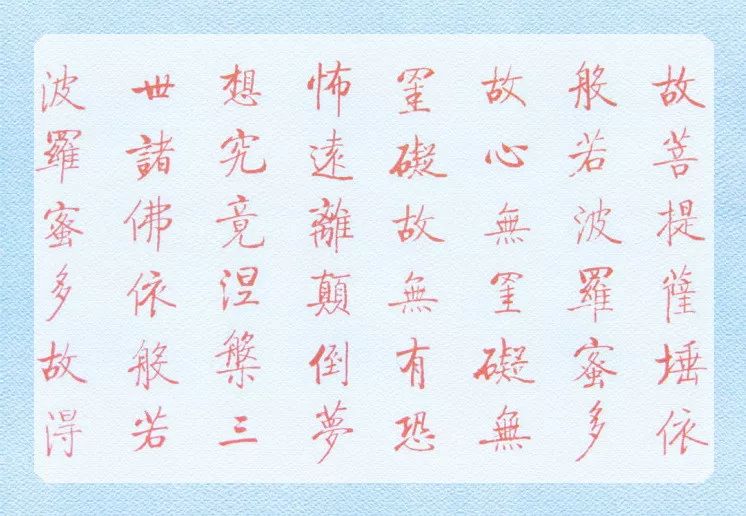 故菩提薩埵依
般若波羅蜜多
故心無罣礙無
罣礙故無有恐
怖遠離顛倒夢
想究竟涅槃三
世諸佛依般若
波羅蜜多故得